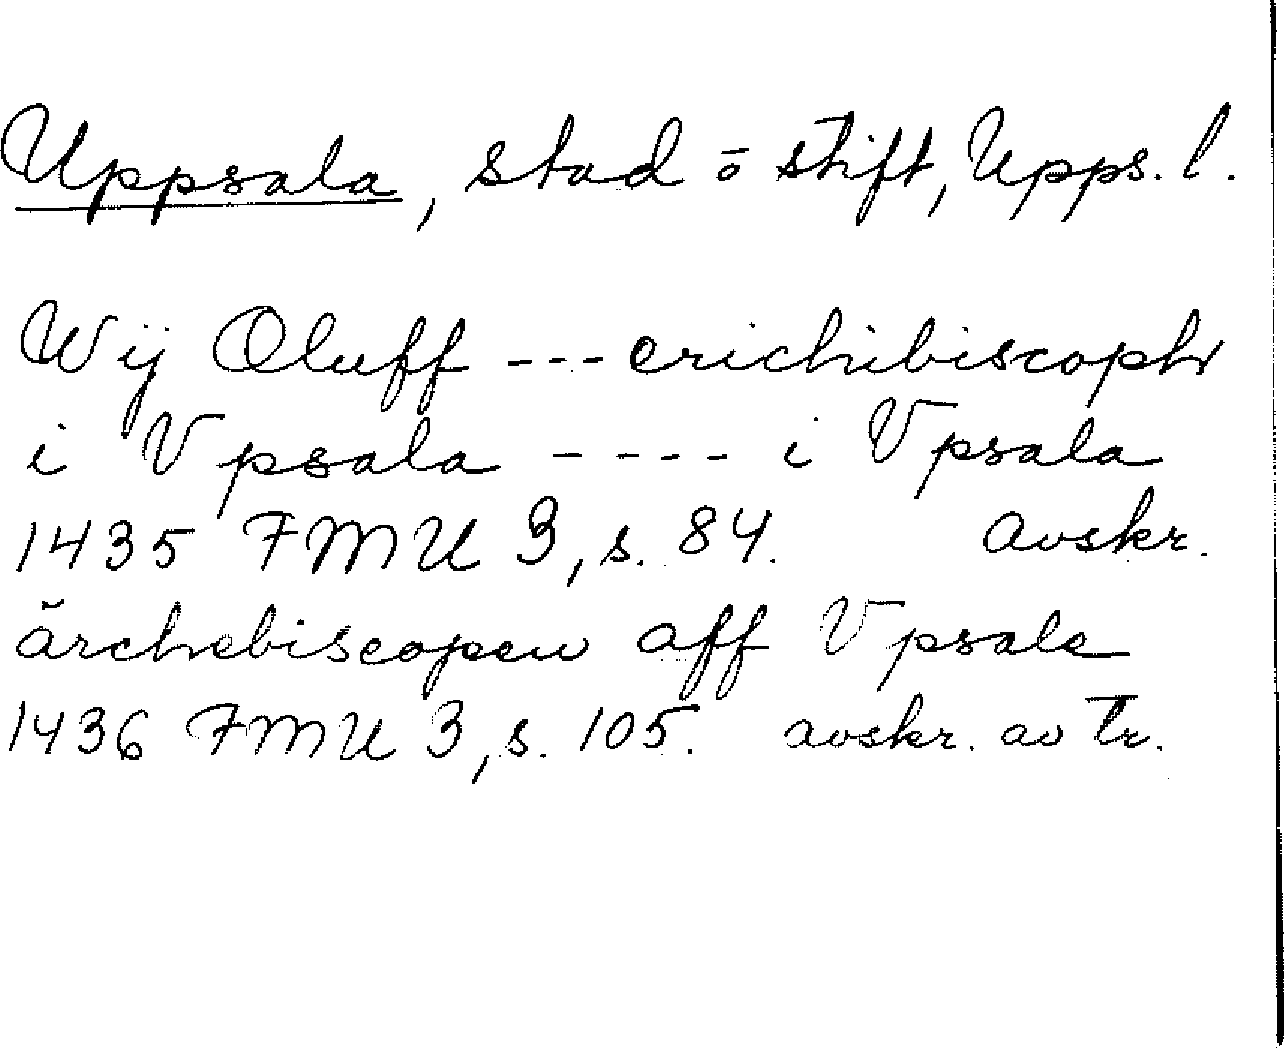 Uppsala, stad o stift, Upps. l.
Wij Oluff --- erichibiscoph
i Vpsala ---- i Vpsala
1435 FMU 3, s. 84. Avskr.
ärchebiscopen aff Vpsale
1436 FMU 3, s. 105. avskr. av Tr.